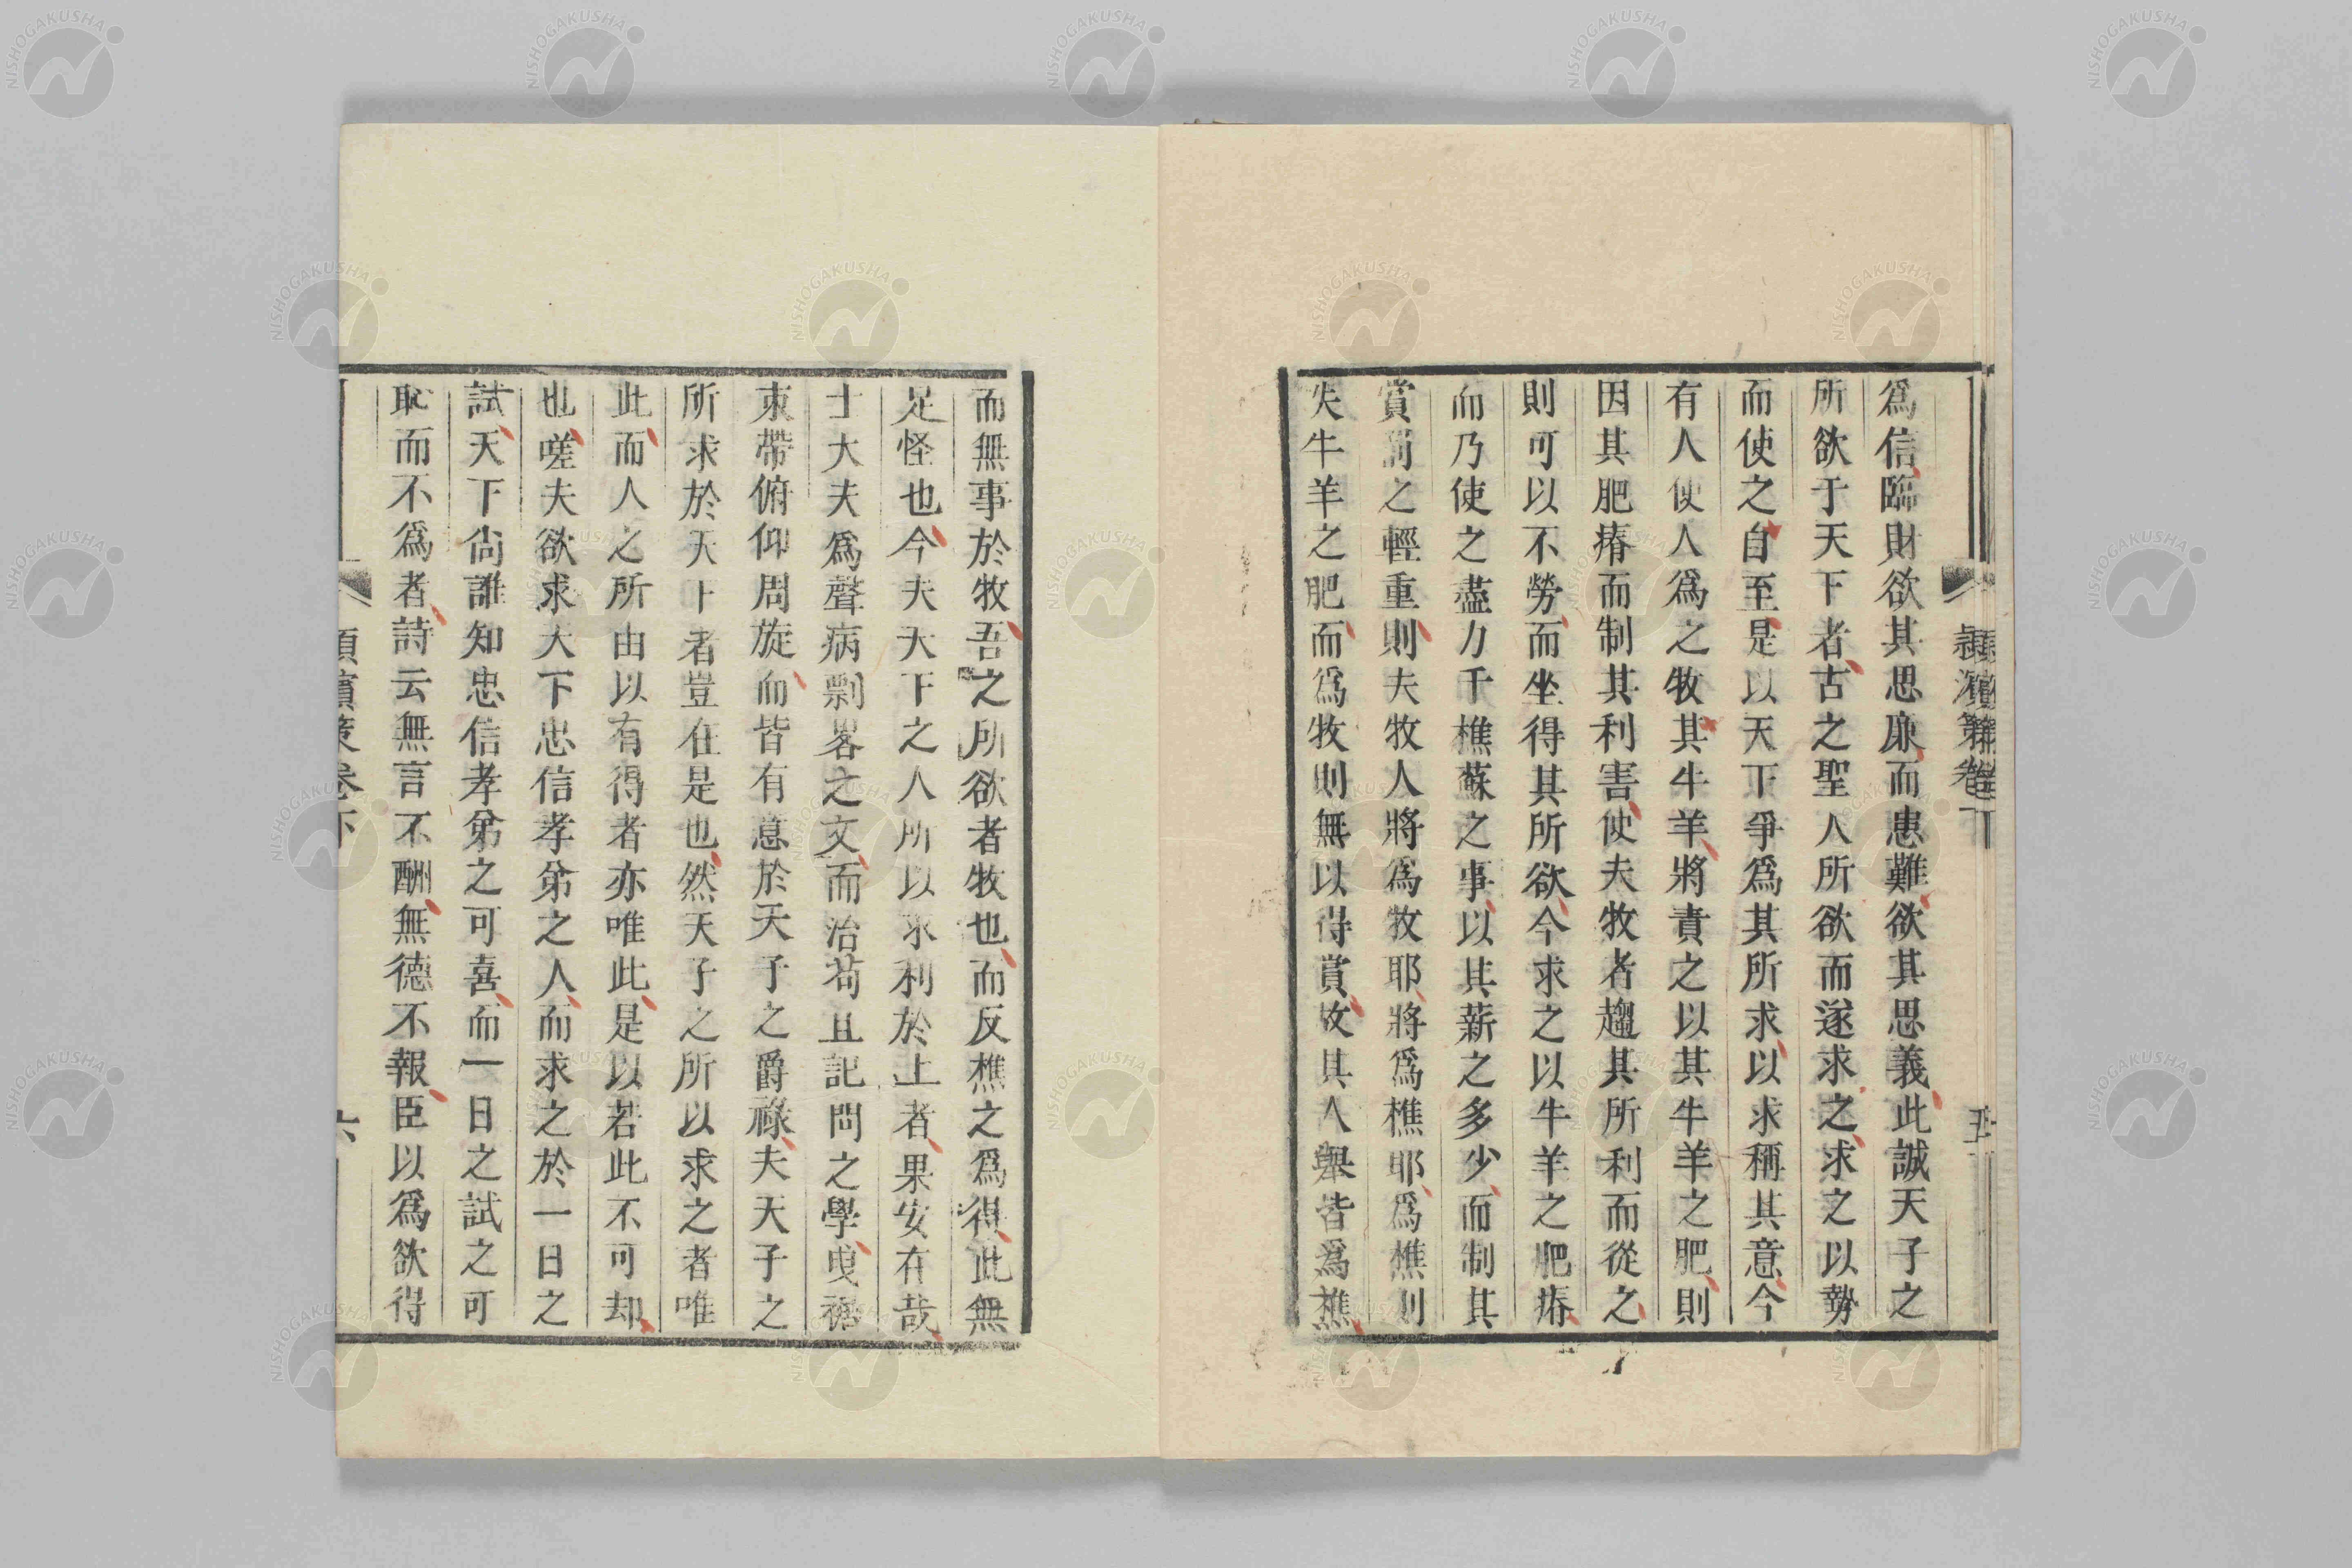 爲信臨財欲其思廉而患難欲其思義此誠天子之
所欲于天下者古之聖人所欲而遂求之求之以勢
而使之自至是以天下爭爲其所求以求稱其意今
有人使人爲之牧其牛羊將責之以其牛羊之肥則
因其肥瘠而制其利害使夫牧者趨其所利而從之
則可以不勞而坐得其所欲今求之以牛羊之肥瘠
而乃使之盡力千樵蘇之事以其薪之多少而制其
賞罰之輕重則夫牧人將爲牧耶將爲樵耶爲樵則
失牛羊之肥而爲牧則無以得賞故其人舉皆爲樵
潁濱策卷下
五
而無事於牧吾之所欲者牧也而反樵之爲得此無
足怪也今夫天下之人所以求利於上者果安在哉
士大夫爲聲病剽畧之文而治苟且記問之學曳裾
束帶俯仰周旋而皆有意於天子之爵祿夫天子之
所求於天下者豈在是也然天子之所以求之者唯
此而人之所由以有得者亦唯此是以若此不可却
也嗟夫欲求天下忠信孝弟之人而求之於一日之
試天下尙誰知忠信孝弟之可喜而一日之試之可
恥而不爲者詩云無言不酬無德不報臣以爲欲得
潁濱策卷下
六
NISHOGAKUSHA